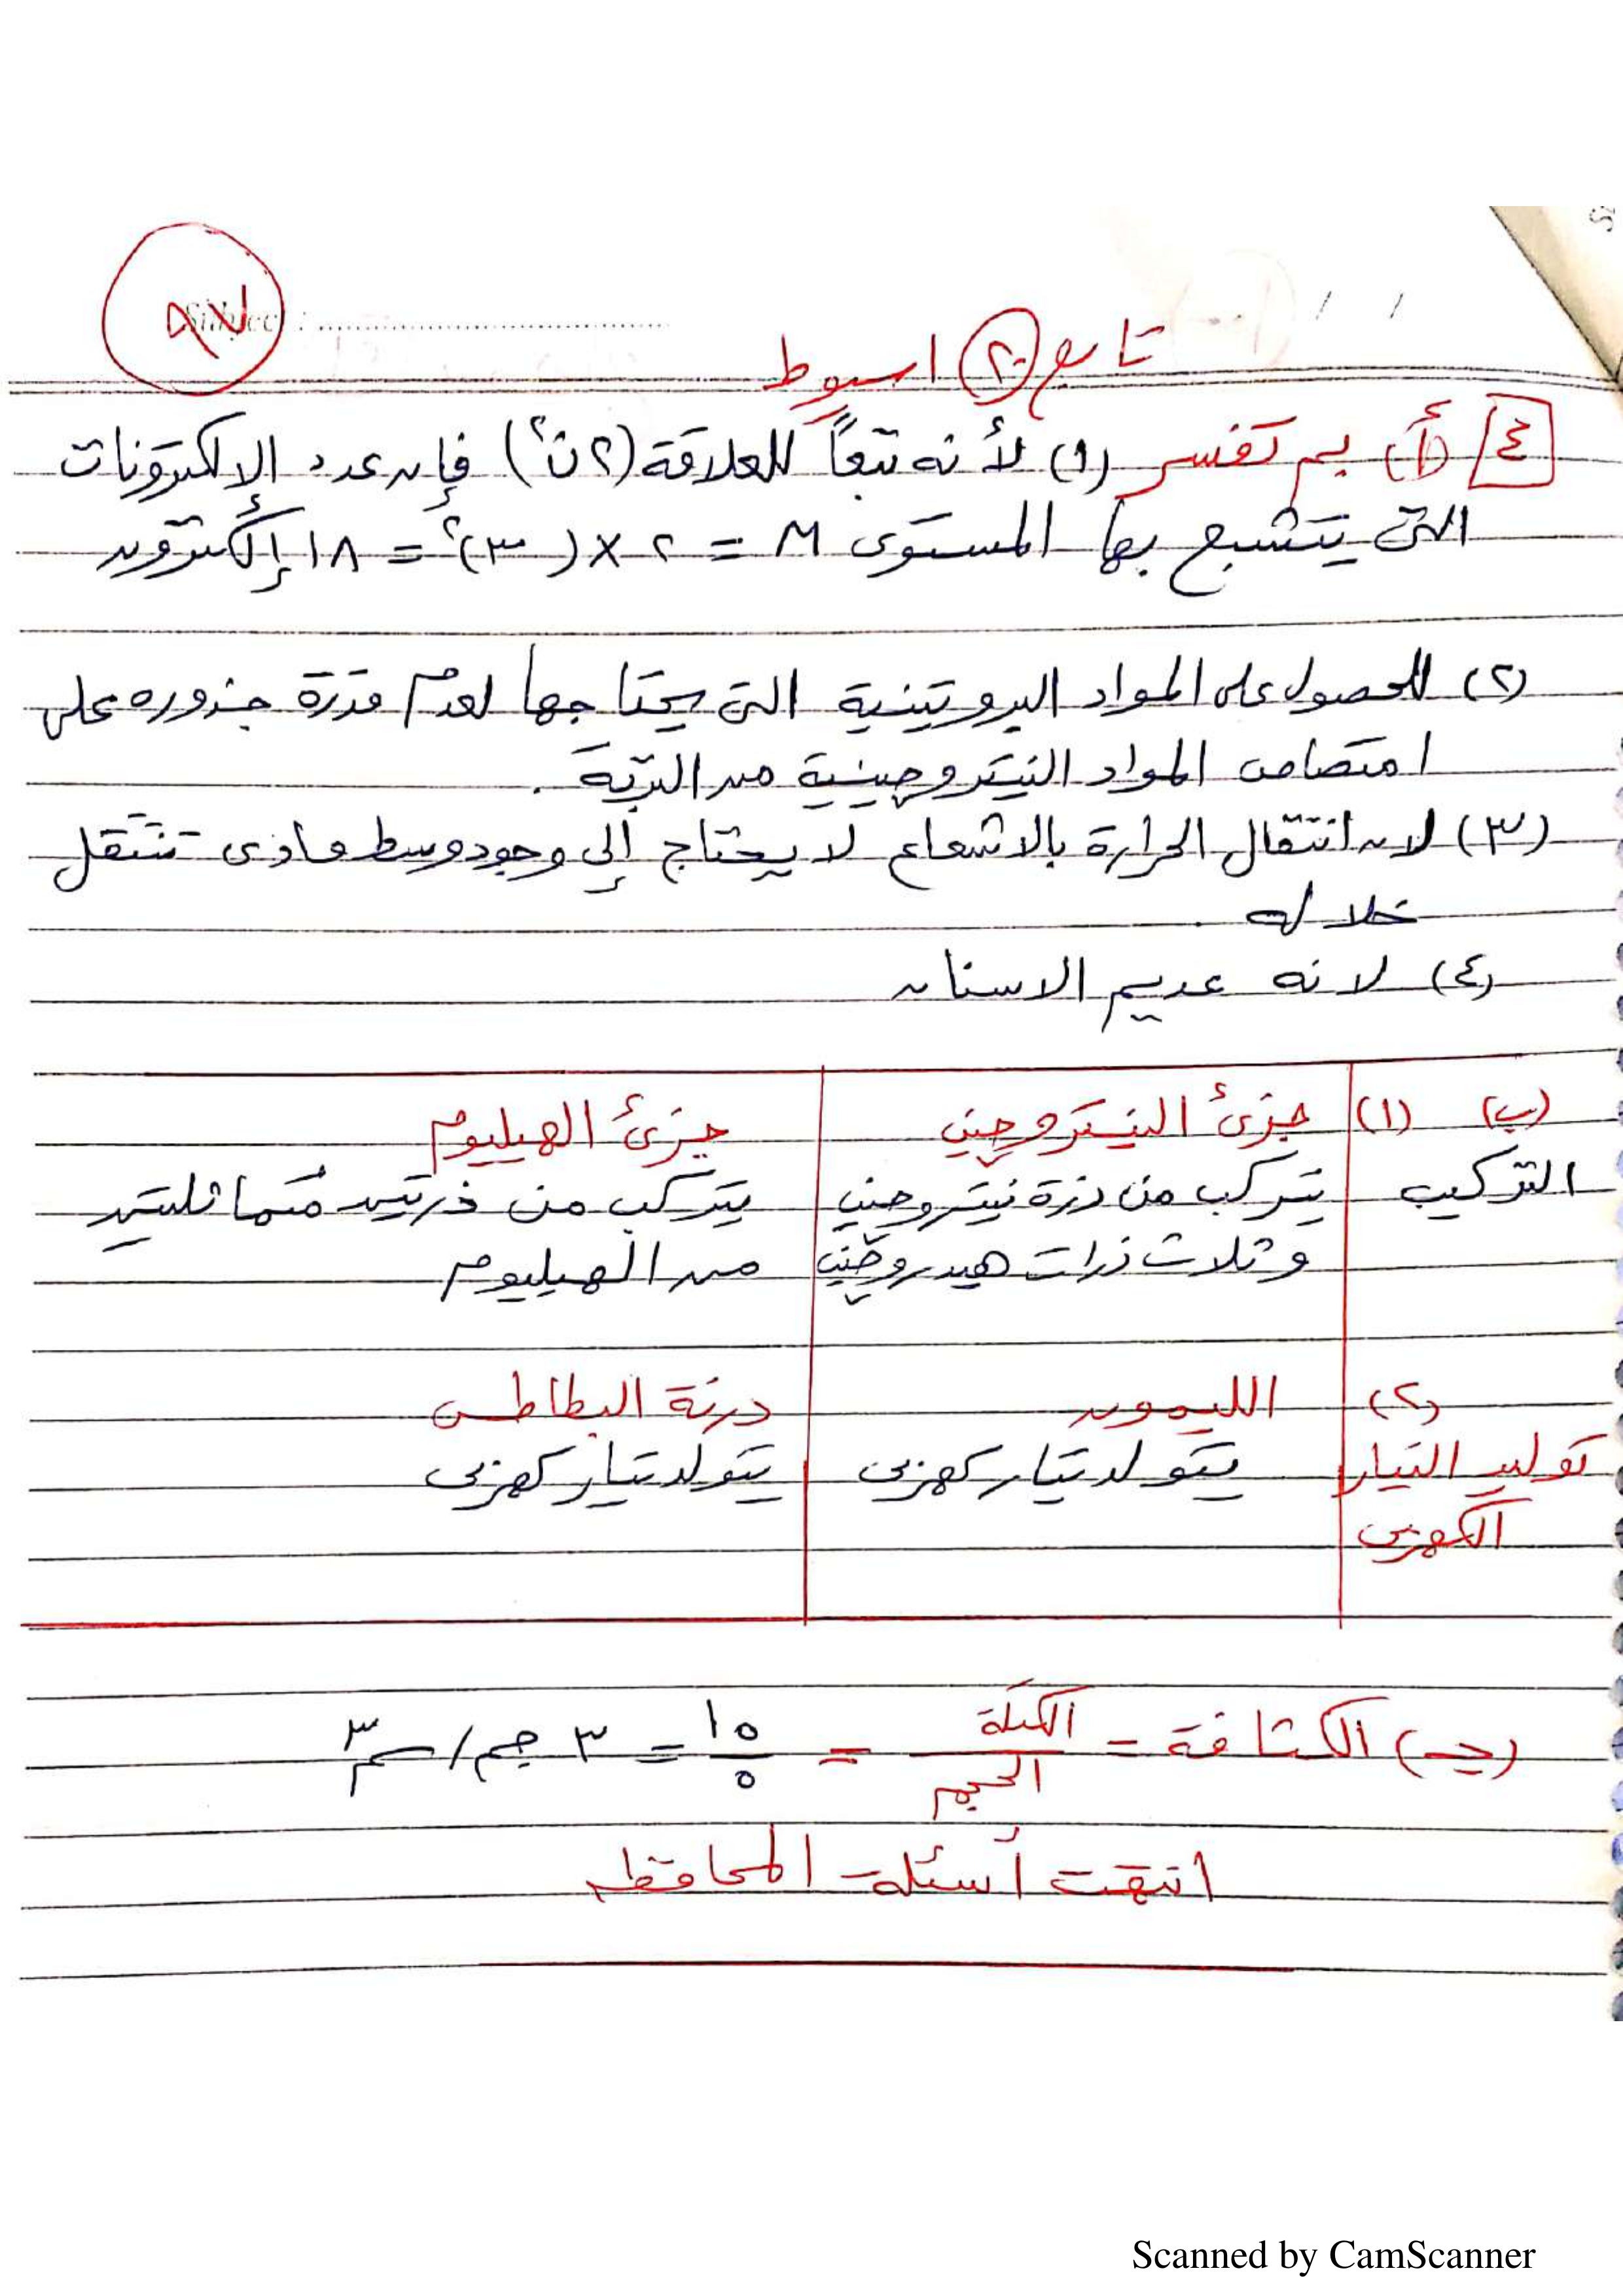 ٩٧
Subject : ........................
/ /
تابع (٢٠) اسيوط
٤ (أ) بم تفسر (١) لأنه تبعاً للعلاقة (٢ن٢) فإن عدد الالكترونات
التى يتشبع بها المستوى M = ٢ × (٣)٢ = ١٨ إلكترون
(٢) للحصول على المواد البروتينية التى يحتاجها لعدم قدرة جذوره على
امتصاص المواد النيتروجينية من التربة .
(٣) لان انتقال الحرارة بالاشعاع لا يحتاج إلى وجود وسط مادى تنتقل
خلاله .
(٤) لانه عديم الاسنان
(ب) (١) جزئ النيتروجين جزئ الهيليوم
التركيب يتركب من ذرة نيتروجين يتركب من ذرتين متماثلتين
وثلاث ذرات هيدروجين من الهيليوم
(٢) الليمون درنة البطاطس
توليد التيار يتولد تيار كهربى يتولد تيار كهربى
الكهربى
(جـ) الكثافة = الكتلة / الحجم = ١٥ / ٥ = ٣ جم/سم٣
انتهت أسئلة المحافظه
Scanned by CamScanner